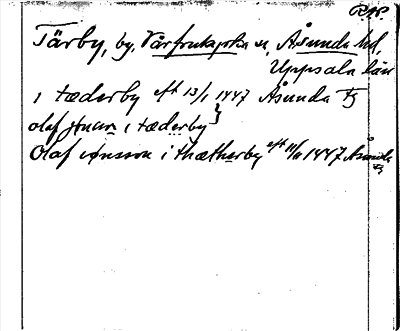 Tärby, by, Vårfrukyrka sn, Åsunda hd,
Uppsala län
i tæderby eft 13/1 1447 Åsunda
olaf jønson i tæderby }
Olaf iønsson i thætherby eft 11/11 1447 Åsunda